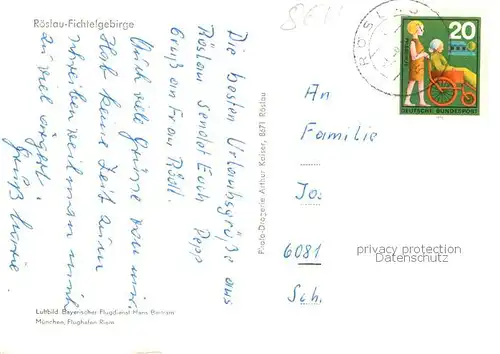 Röslau-Fichtelgebirge
Die besten Urlaubsgrüße aus
Röslau sendet Euch Pepp
Gruß an Frau Rödl.
Auch viele Grüsse von mir.
Hab keine Zeit zum
schreiben weil man mich
zu viel ärgert.
Gruß
Luftbild Bayerischer Flugdienst Hans Bertram
München, Flughafen Riem
Photo-Drogerie Arthur Kaiser, 8671 Röslau
RÖSLAU
20
DEUTSCHE BUNDESPOST
An
Familie
Jo:
6081
Sch.
privacy protection
Datenschutz